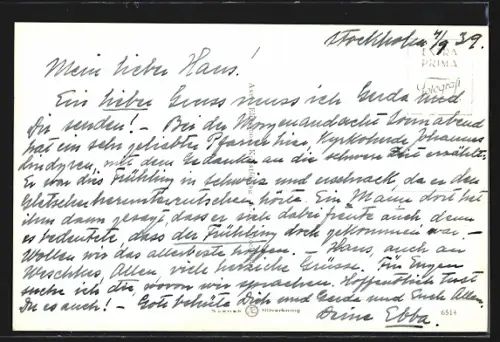 Stockholm 4/9 39.
EXTRA
PRIMA
Fotografi
Mein lieber Hans!
Ein lieber Gruss muss ich Gerda und
Dir senden! – Bei der Morgenandacht Sonnabend
hat ein sehr geliebter Pfarrer hier, Kyrkoherde Johannes
Lindgren, mit dem Gedanken an die schwere Zeit erzählte.
Er war dies Frühling in Schweiz und erschrack, da er den
Gletscher herunterrutschen hörte. Ein Mann dort hat
ihm dann gesagt, dass er sich dabei freute auch denn
es bedeutete, dass der Frühling doch gekommen war –
Wollen wir das allerbeste hoffen. – Hans, auch an
Allen, viele herzliche Grüsse. Für Eugen
suche ich die, wovon wir sprachen. Hoffentlich tust
Du es auch! – Gott behüte Dich und Gerda und Euch Allen.
Deine Ebba.
6514